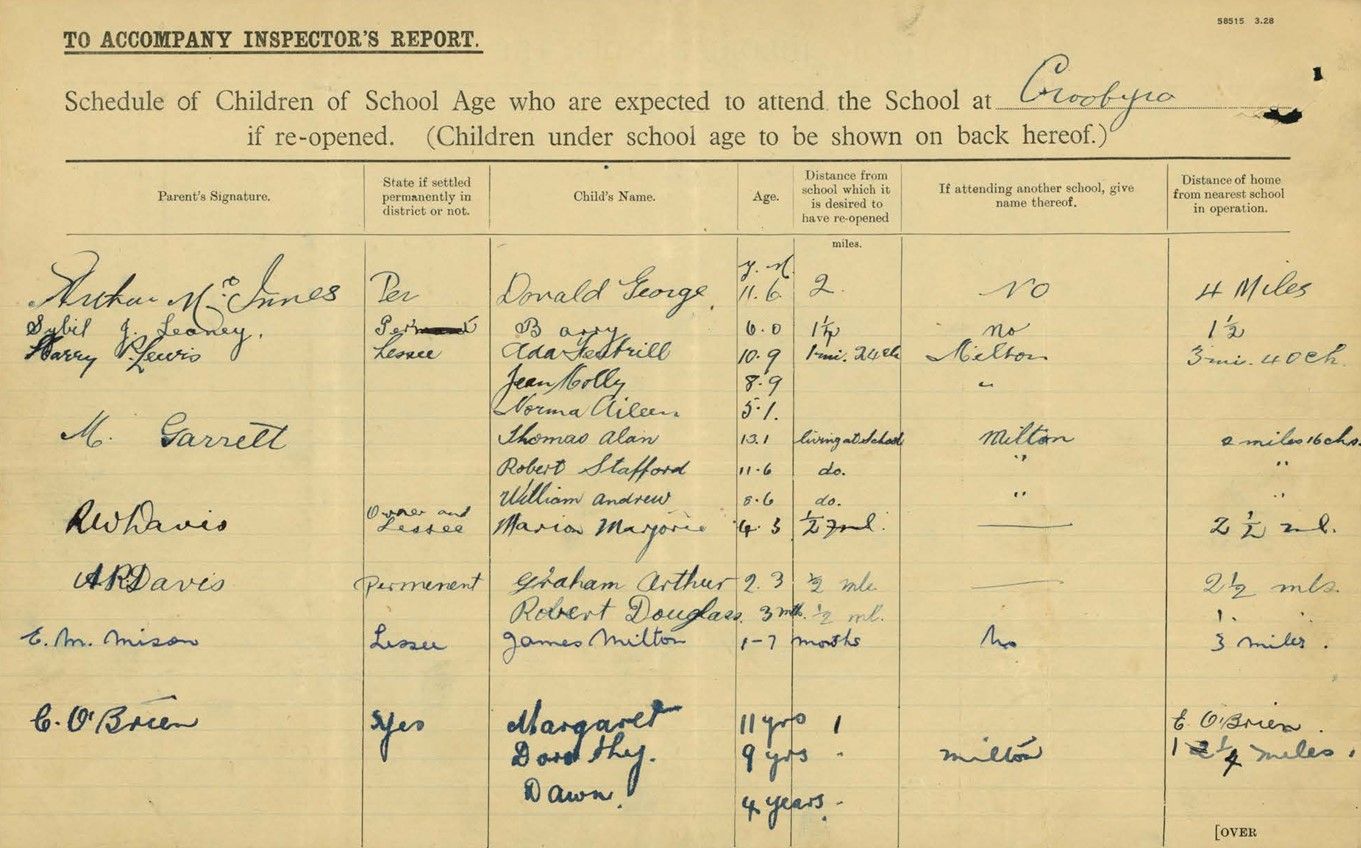 58515 3.28
TO ACCOMPANY INSPECTOR'S REPORT.
1
Schedule of Children of School Age who are expected to attend the School at Croobyra
if re-opened. (Children under school age to be shown on back hereof.)
Parent's Signature. State if settled permanently in district or not. Child's Name. Age. Distance from school which it is desired to have re-opened If attending another school, give name thereof. Distance of home from nearest school in operation.
miles.
y. M.
Arthur McInnes Per Donald George 11.6 2. NO 4 Miles
Sybil J. Leaney. Barry 6.0 1½ No 1½
Harry Lewis Lessee Ada 10.9 1 mi. 24 ch Milton 3 mi. 40 ch.
Jean Molly 8.9 "
Norma Aileen 5.1.
M. Garrett Thomas Alan 13.1 living at School Milton 2 miles 16 chs.
Robert Stafford 11.6 do. " "
William Andrew 8.6 do. " "
RW Davis Owner and Lessee Marion Marjorie 4.3 ½ ml. — 2½ ml.
AR Davis permenent Graham Arthur 2.3 ½ mle. — 2½ mls.
Robert Douglass. 3 mth. ½ ml. 1.
E. M. Mison Lessee James Milton 1-7 months No 3 miles.
E. O'Brien Yes Margaret 11 yrs 1 E. O'Brien.
Dorothy. 9 yrs " Milton 1 ¼ miles.
Dawn. 4 years. "
[OVER